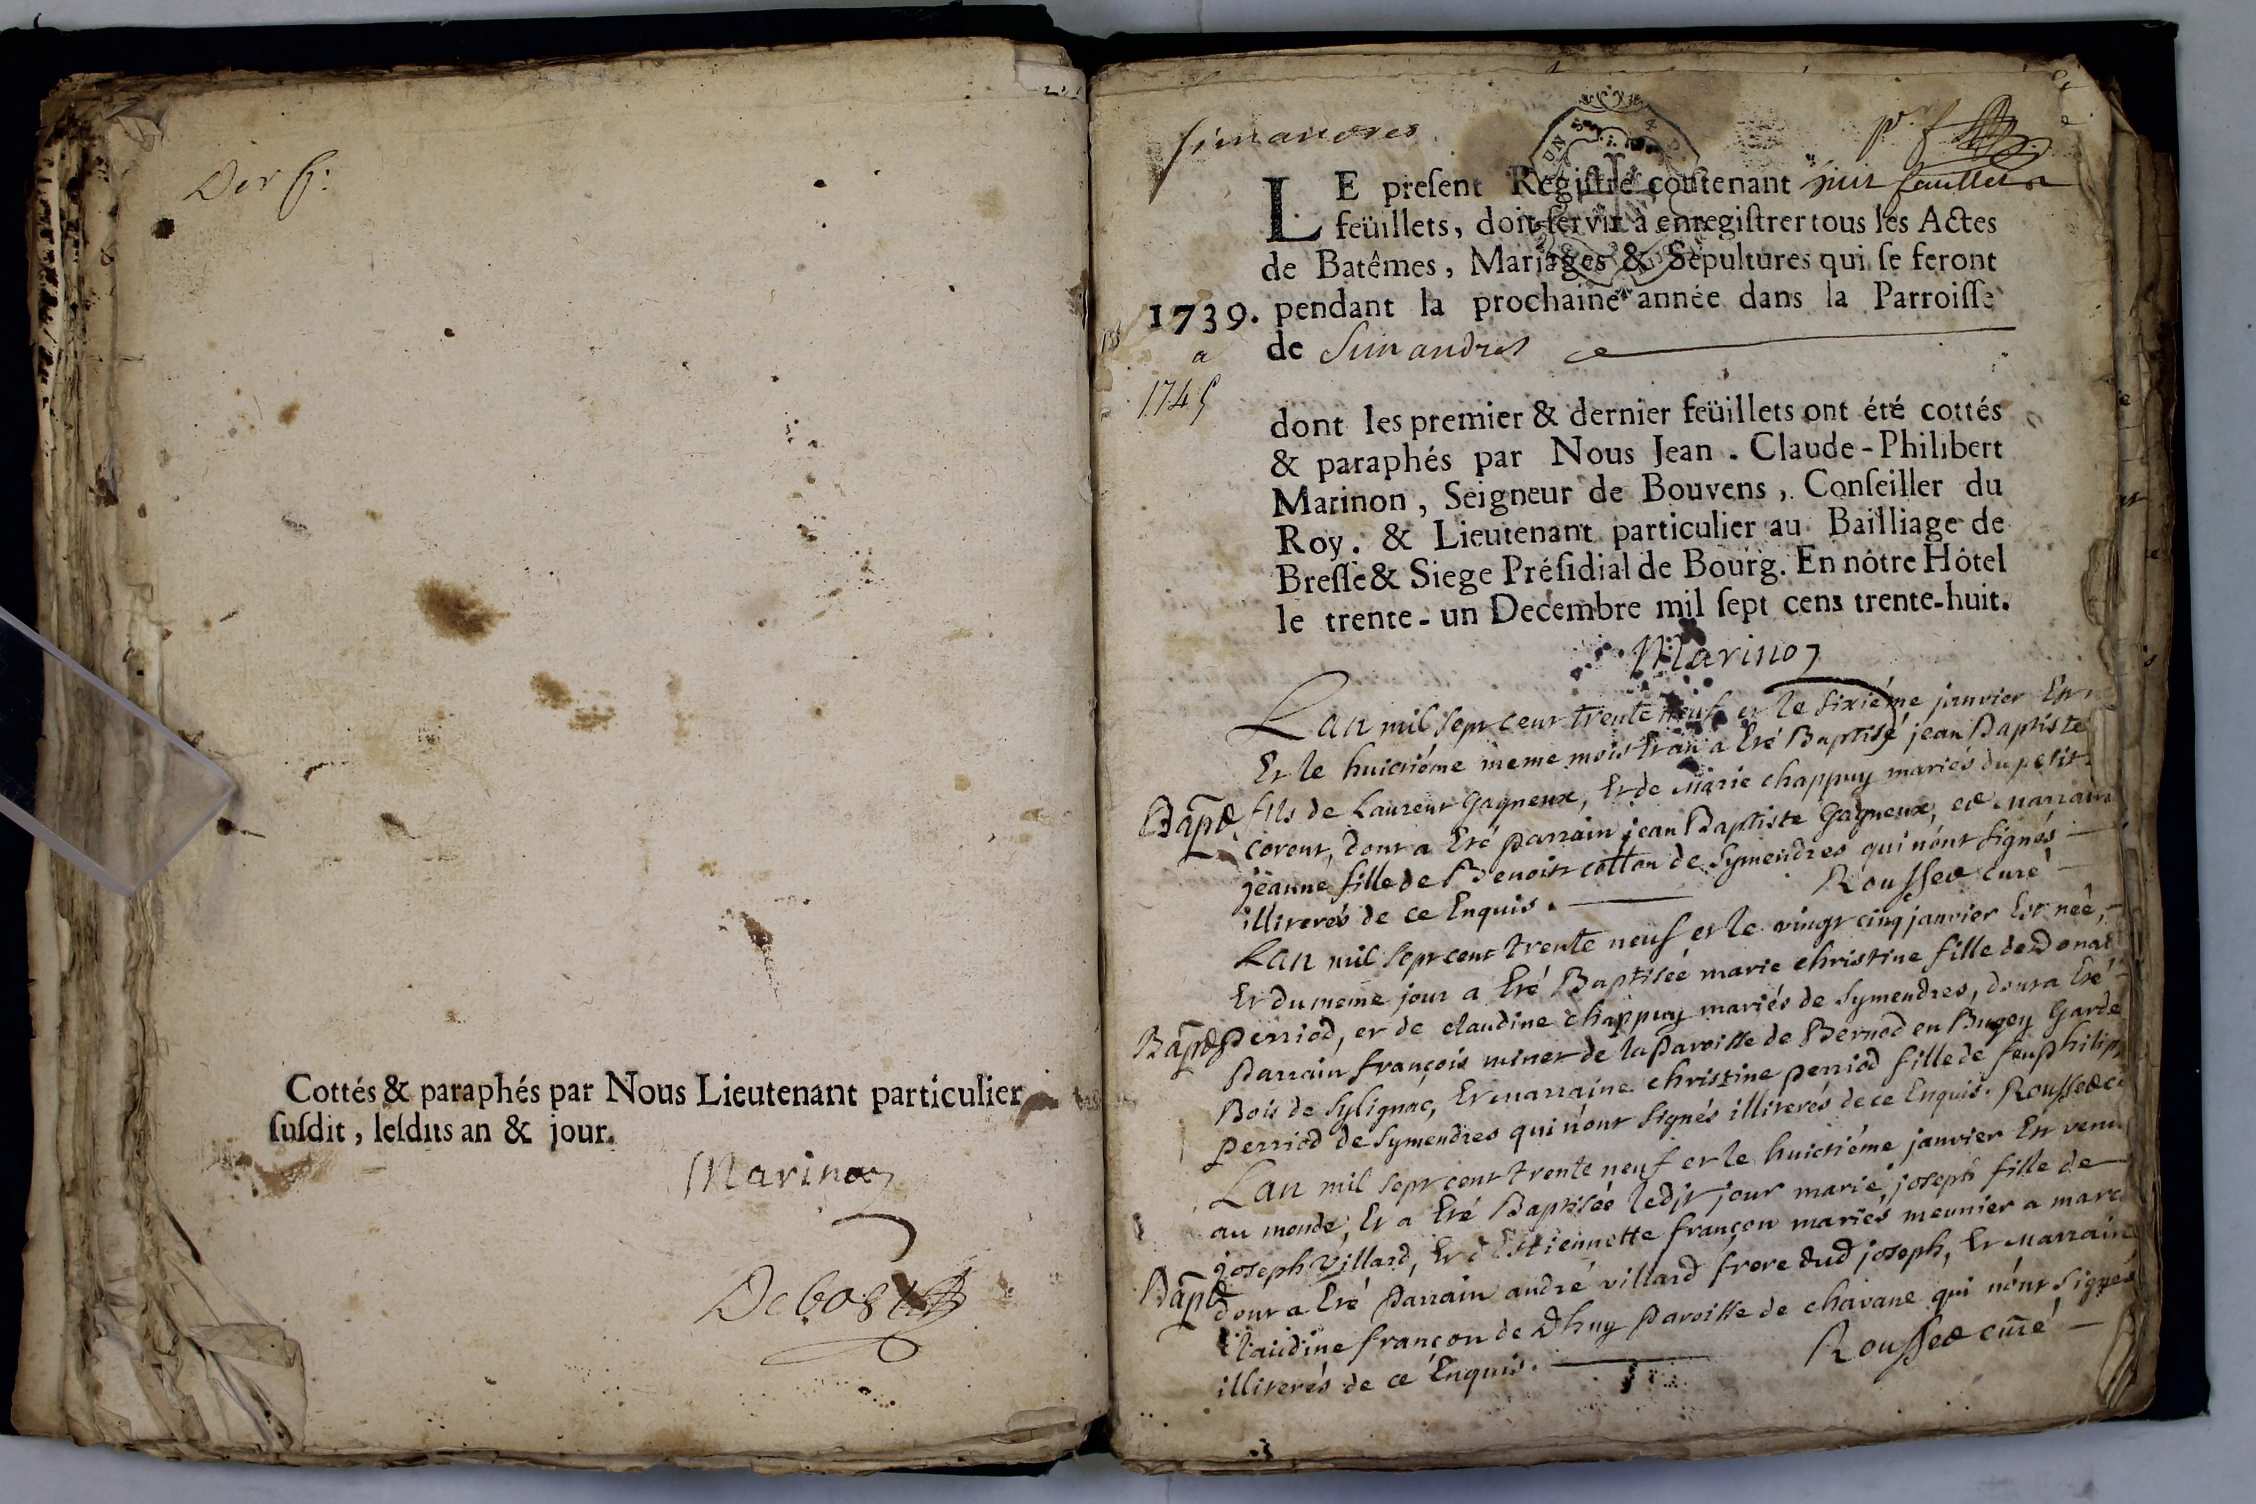 Der f:
Cottés & paraphés par Nous Lieutenant particulier
susdit, lesdits an & jour.
Marinon
Debost
Simandres
pr f
LE present Registre contenant huit
feüillets, doit servir à enregistrer tous les Actes
de Batêmes, Mariages & Sepultures qui se feront
1739. pendant la prochaine année dans la Parroisse
a
de Simandres
1745
dont les premier & dernier feüillets ont été cottés
& paraphés par Nous Jean-Claude-Philibert
Marinon, Seigneur de Bouvens, Conseiller du
Roy. & Lieutenant particulier au Bailliage de
Bresse & Siege Présidial de Bourg. En nôtre Hôtel
le trente-un Decembre mil sept cens trente-huit.
Marinon
Lan mil sept cent trente neuf et le sixiéme janvier Est
Et le huictiéme meme mois Et an a Eté Baptisé jean Baptiste
Bapte fils de Laurent Gagneux, Et de Marie chappuy mariés du petit
corent, dont a Eté parrain jean Baptiste Gagneux, et Marraine
jeanne fille de Benoit cotton de Symendres qui n'ont signés
illiterés de ce Enquis. Rousset curé
Lan mil sept cent trente neuf et le vingt cinq janvier Est neé,
Et du meme jour a Eté Baptiseé marie christine fille de Donat
Bapte perriod, et de claudine chappuy mariés de Symendres, dont a Eté
Parrain françois minet de la Paroisse de Bernod en Bugey Garde
Bois de Sylignac, Et Marraine christine perriod fille de feu philip
perriod de Symendres qui n'ont signés illiterés de ce Enquis. Rousset c
Lan mil sept cent trente neuf et le huictiéme janvier Est venu
au monde, Et a Eté Baptiseé ledit jour marie joseph fille de
joseph Villard, Et d'Estiennette françon mariés, meunier a marc
Bapte dont a Eté Parrain andré villard frere dud joseph, Et Marraine
Claudine françon de Dhuy Paroisse de chavane qui n'ont signés
illiterés de ce Enquis. Rousset curé